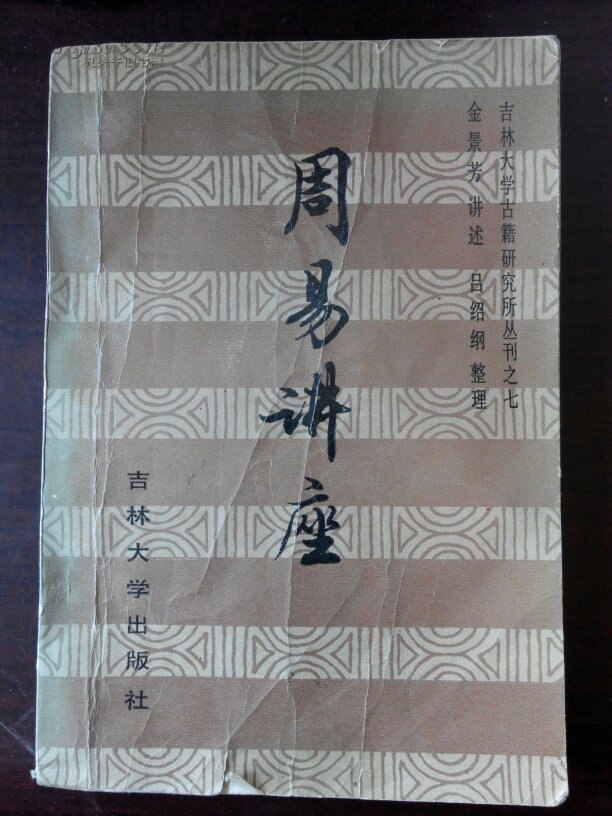 吉林大学古籍研究所丛刊之七
金景芳 讲述 吕绍纲 整理
周易讲座
吉林大学出版社